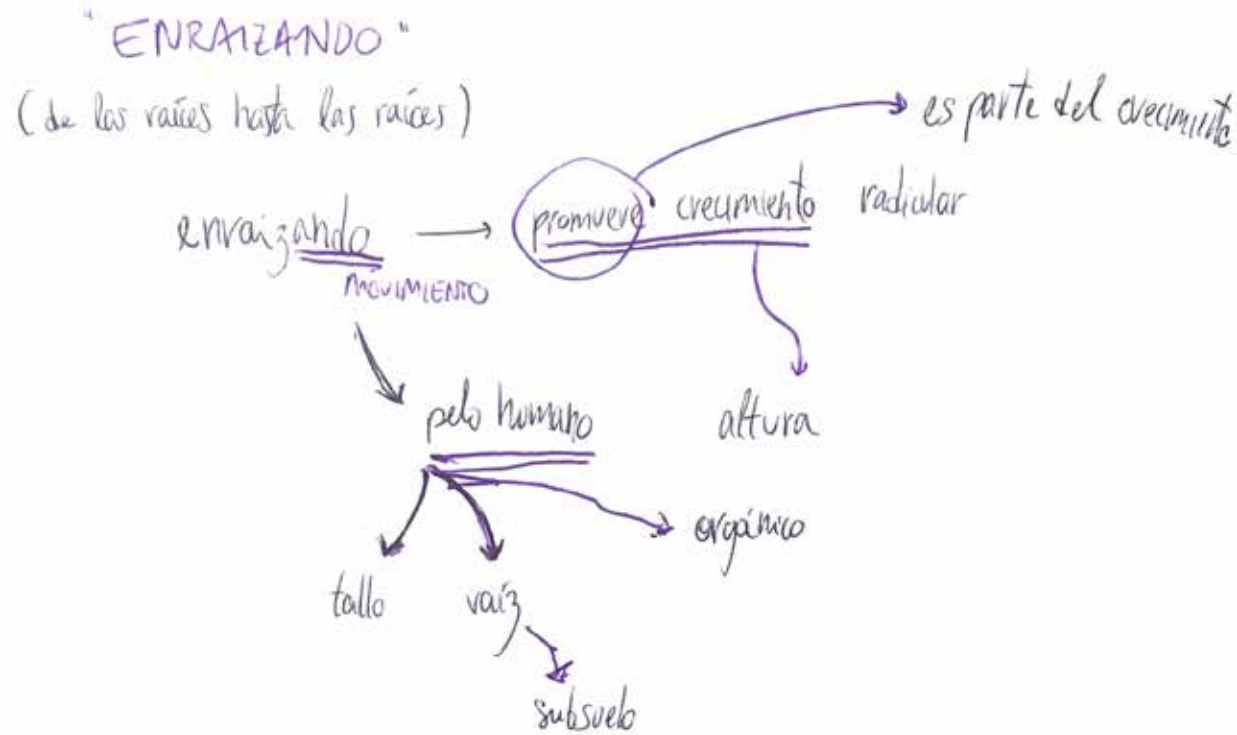 "ENRAIZANDO"
(de las raíces hasta las raíces)
es parte del crecimiento
enraizando → promueve crecimiento radicular
MOVIMIENTO
pelo humano
altura
orgánico
tallo raíz
subsuelo